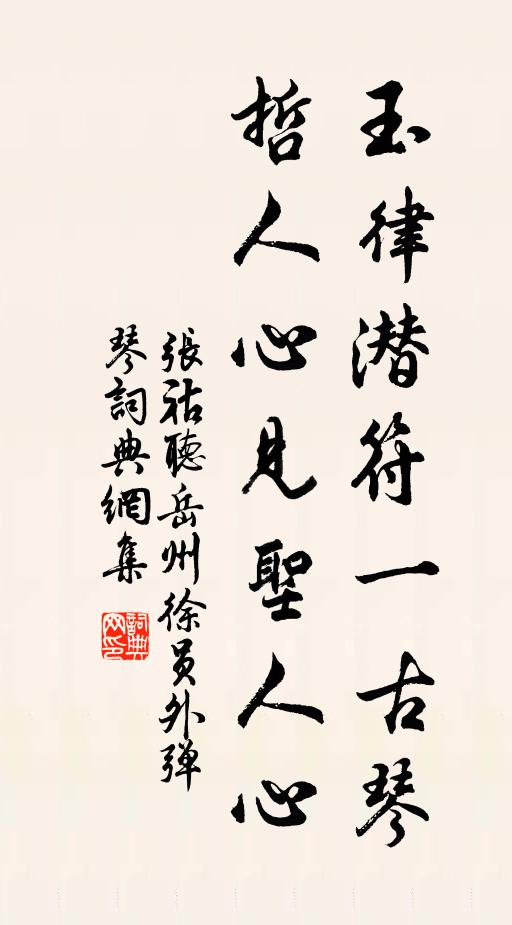 玉律潜符一古琴
哲人心見聖人心
張祜聽岳州徐員外弹
琴詞典網集
詞典网印